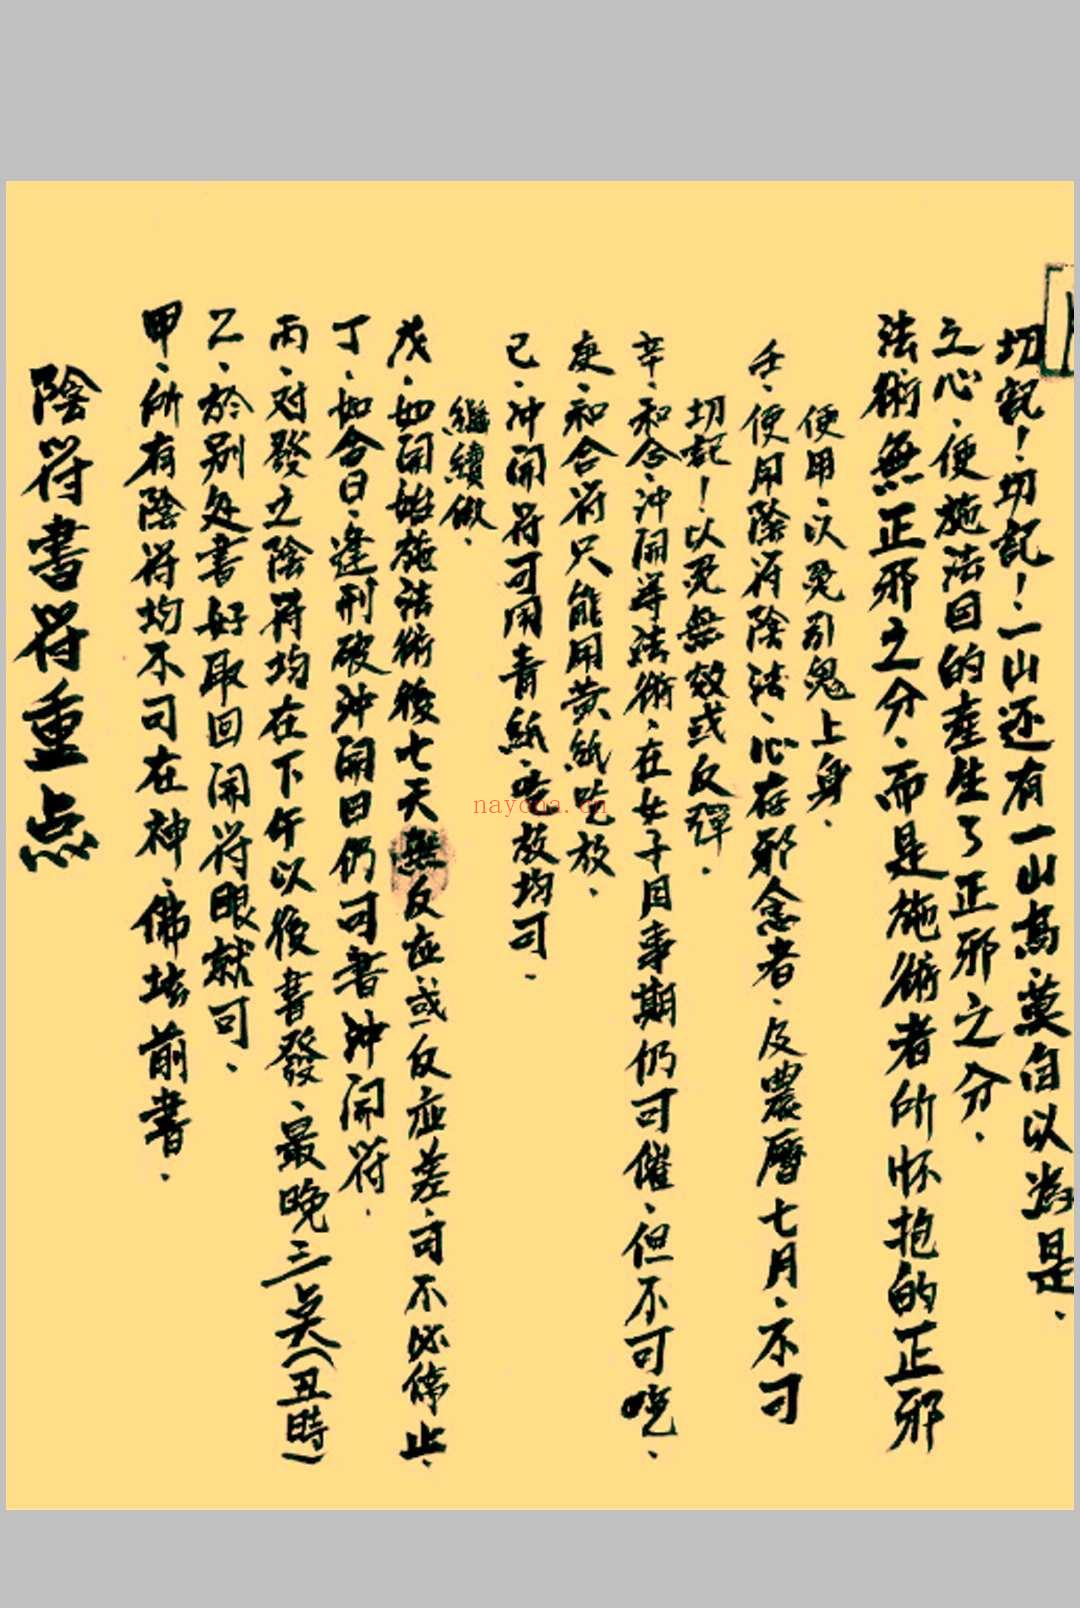 陰符書符重点
甲、所有陰符均不可在神、佛坛前書.
乙、於別处書好取回開符眼就可.
丙、对發之陰符均在下午以後書發、最晚三点(丑時)
丁、如合日、逢刑破冲開日仍可書冲開符.
戊、如開始施法術後七天無反应、或反应差、可不必停止、
繼續做.
己、冲開符可用青紙、放均可.
庚、和合符只能用黃紙吃放.
辛、和合、冲開等法術、在女子月事期仍可催、但不可、
切記！以免無效或反彈.
壬、便用陰符陰法、心存邪念者、及農曆七月、不可
便用、以免引鬼上身.
法術無正邪之分、而是施術者所怀抱的正邪
之心、便施法目的產生了正邪之分.
切記！切記！一山还有一山高、莫自以為是.